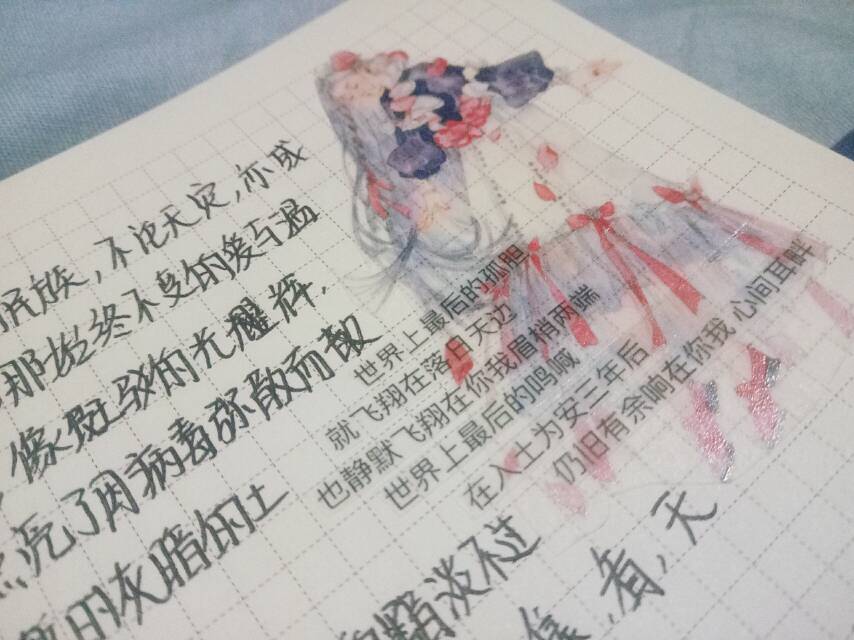 民族，不论天灾，亦或
那始终不变的爱与温
像斑驳的光耀辉，
亮了因病毒弥散而散
的灰暗的土
世界上最后的孤胆
就飞翔在落日天边
也静默飞翔在你我眉梢两端
世界上最后的鸣喊
在入土为安三年后
仍旧有余响在你我 心间耳畔
淡不过
看，天